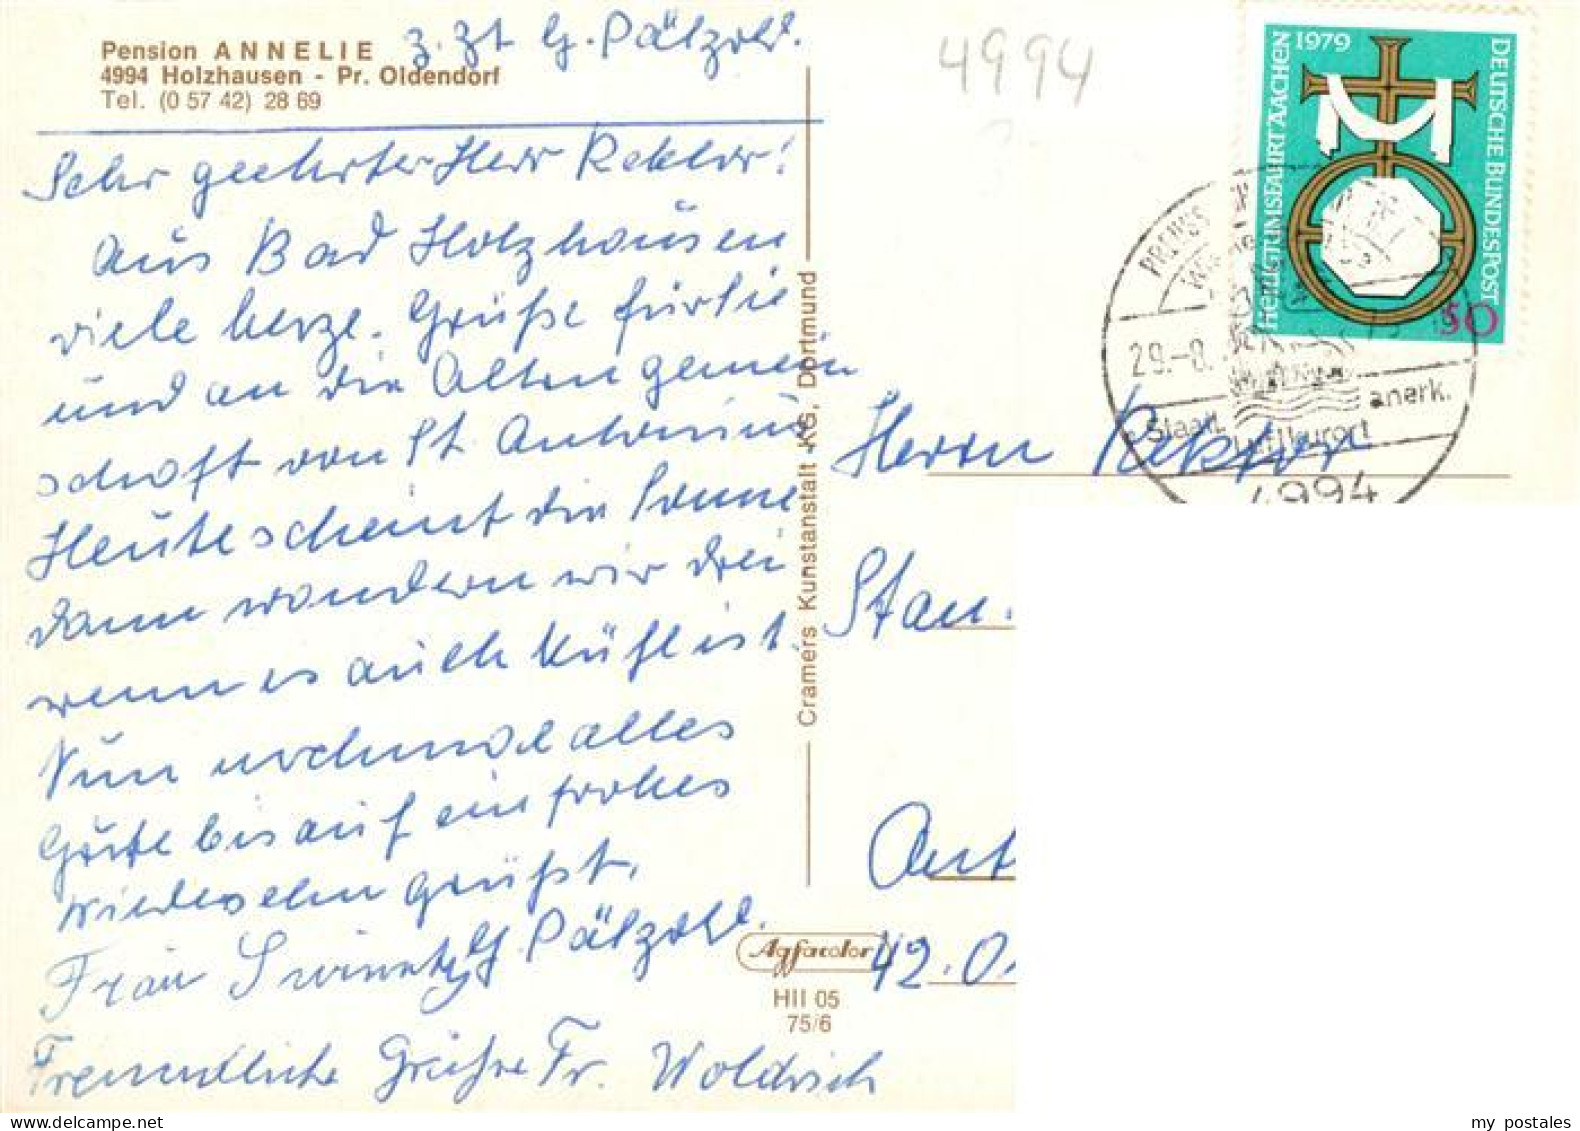 Pension ANNELIE z. Zt G. Pätzold.
4994 Holzhausen - Pr. Oldendorf
Tel. (0 57 42) 28 69
Sehr geehrter Herr Rektor!
Aus Bad Holzhausen
viele herzl. Grüße für Sie
und an die Altengemein
schaft von St. Antonius
Heute scheint die Sonne
dann wandern wir drei
wenn es auch kühl ist.
Nun nochmal alles
Gute bis auf ein frohes
Wiedersehn grüßt.
Frau G. Pätzold.
Freundliche Grüße Fr. Woldrich
Cramers Kunstanstalt KG, Dortmund
Agfacolor
HII 05
75/6
4994
DEUTSCHE BUNDESPOST
HEILIGTUMSFAHRT AACHEN 1979
50
29.-8.
Staatl. anerk.
Luftkurort
4994
Herrn Rektor
Stau.
Ant
42.O.
my postales